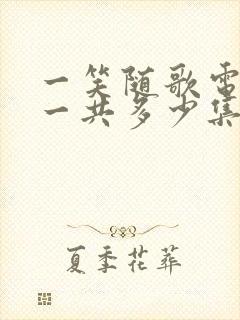 一笑随歌电
一共多少集
夏季花葬